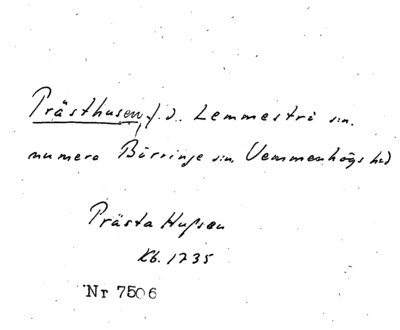 Prästhusen, f.d. Lemmeströ sn.
numera Börringe sn, Vemmenhögs hd
Prästa Hußen
Kb. 1735
Nr 7506